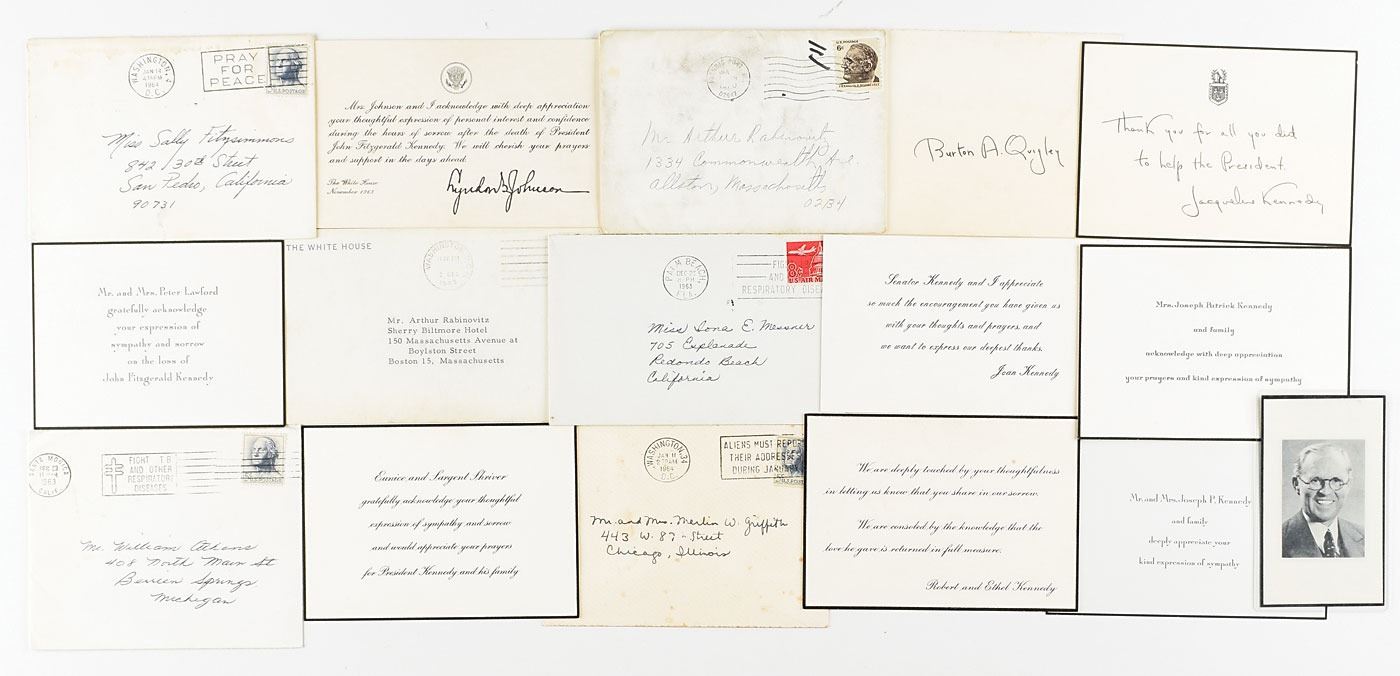 WASHINGTON, 4
JAN 14
1964
D.C.
PRAY
FOR
PEACE
U.S. POSTAGE
Miss Sally Fitzsimmons
842 / 30th Street
San Pedro, California
90731
Mrs. Johnson and I acknowledge with deep appreciation
your thoughtful expression of personal interest and confidence
during the hours of sorrow after the death of President
John Fitzgerald Kennedy. We will cherish your prayers
and support in the days ahead.
The White House
November 1963
Lyndon B. Johnson
U.S. POSTAGE
6¢
Mr. Arthur Rabinovitz
1334 Commonwealth Ave.
Allston, Massachusetts
02134
Burton A. Quigley
Thank you for all you did
to help the President.
Jacqueline Kennedy
Mr. and Mrs. Peter Lawford
gratefully acknowledge
your expression of
sympathy and sorrow
on the loss of
John Fitzgerald Kennedy
THE WHITE HOUSE
WASHINGTON
Mr. Arthur Rabinovitz
Sherry Biltmore Hotel
150 Massachusetts Avenue at
Boylston Street
Boston 15, Massachusetts
PALM BEACH,
DEC 22
PM
1963
FLA.
FIG
AND
RESPIRATORY DISEA
8¢
U.S. AIR M
Miss Iona E. Messner
705 Esplanade
Redondo Beach
California
Senator Kennedy and I appreciate
so much the encouragement you have given us
with your thoughts and prayers, and
we want to express our deepest thanks.
Joan Kennedy
Mrs. Joseph Patrick Kennedy
and family
acknowledge with deep appreciation
your prayers and kind expression of sympathy
SANTA MONICA
1963
CALIF.
FIGHT TB
AND OTHER
RESPIRATORY
DISEASES
Mr. William Atkens
408 North Main St
Berrien Springs
Michigan
Eunice and Sargent Shriver
gratefully acknowledge your thoughtful
expression of sympathy and sorrow
and would appreciate your prayers
for President Kennedy and his family
WASHINGTON, 34
JAN 11
AM
1964
D.C.
ALIENS MUST REPOR
THEIR ADDRESSE
DURING JANUARY
Mr. and Mrs. Merlin W. Griffith
443 W. 87 - Street
Chicago, Illinois
We are deeply touched by your thoughtfulness
in letting us know that you share in our sorrow.
We are consoled by the knowledge that the
love he gave is returned in full measure.
Robert and Ethel Kennedy
Mr. and Mrs. Joseph P. Kennedy
and family
deeply appreciate your
kind expression of sympathy